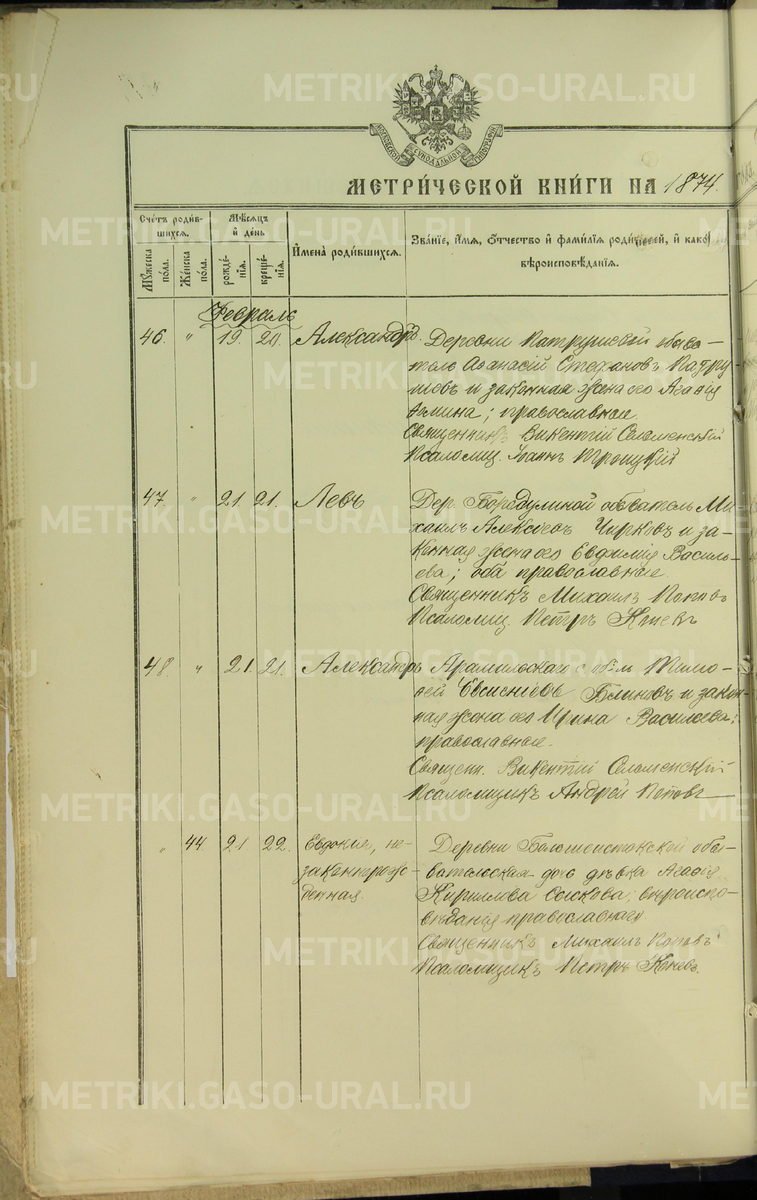 METRIKI.GASO-URAL.RU
МОСКОВСКОЙ СѴНОДАЛЬНОЙ ТИПОГРАФІИ
МЕТРИ́ЧЕСКОЙ КНИ́ГИ НА 1874.
Сче́тъ роди́вшихся.
Мѹ́жеска по́ла.
Же́нска по́ла.
Мѣ́сяцъ и́ де́нь
рожде́нїя.
креще́нїя.
И́мена̀ роди́вшихся.
Зва́нїе, и́мя, ѻ́тчество и́ фами́лїя роди́телей, и́ како́гѡ
вѣроисповѣ́данїя.
Февраль
46. " 19. 20. Александръ.
Деревни Патрушевой обыва-
тель Аѳанасій Стефановъ Патру
шевъ и законная жена его Агаѳія
Ѳомина; православные.
Священникъ Викентій
Псаломщ. Іоаннъ Троицкій
47. " 21. 21. Левъ
Дер. Бородулиной обыватель Ми-
хаилъ Алексѣевъ Чирковъ и за-
конная жена его Евфимія Василь-
ева; оба православные.
Священникъ Михаилъ Поповъ
Псаломщ. Петръ
48. " 21. 21. Александръ
Арамильскаго Тимо-
ѳей Блиновъ и закон
ная жена его Ирина Васильева;
православные.
Священ. Викентій
Псаломщикъ Андрей Поповъ
" 44 21 22. Евдокія, не-
законнорож-
денная.
Деревни обы-
вательская дочь дѣвка Агаѳія
Кириллова вѣроиспо-
вѣданія православнаго
Священникъ Михаилъ Поповъ
Псаломщикъ Петръ